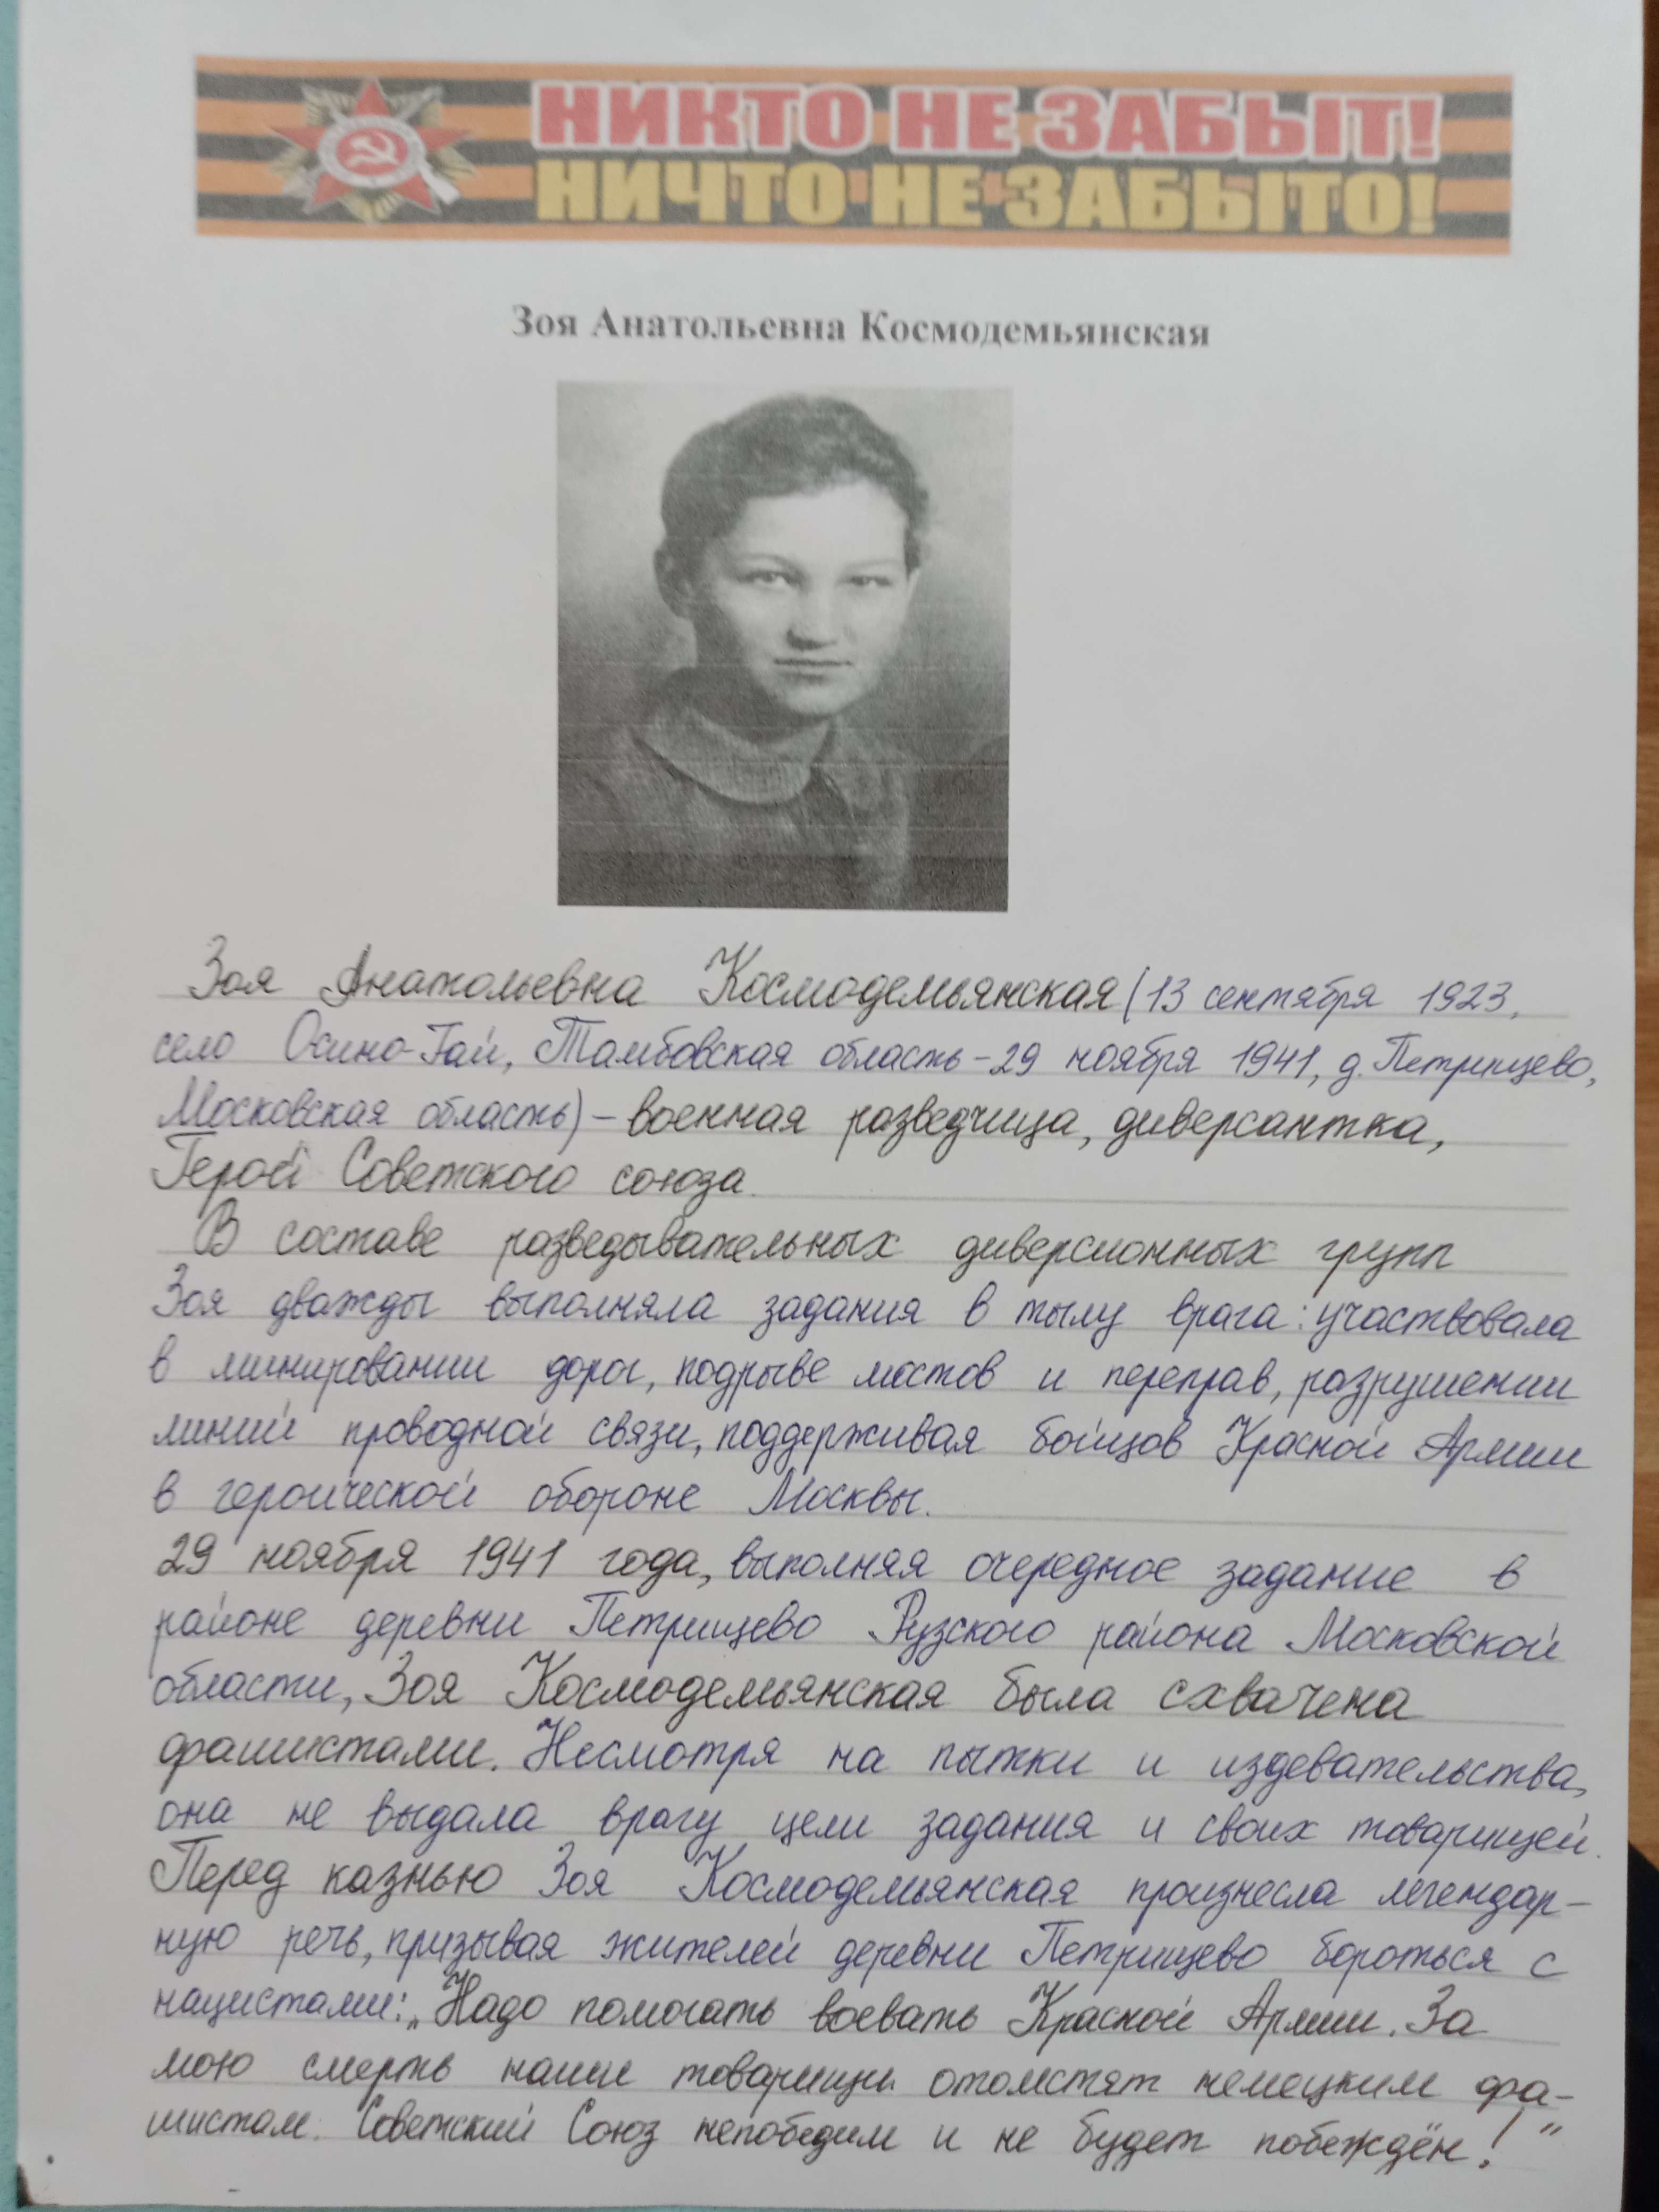 НИКТО НЕ ЗАБЫТ!
НИЧТО НЕ ЗАБЫТО!
Зоя Анатольевна Космодемьянская
Зоя Анатольевна Космодемьянская (13 сентября 1923,
село Осино-Гай, Тамбовская область - 29 ноября 1941, д. Петрищево,
Московская область) – военная разведчица, диверсантка,
Герой Советского союза.
В составе разведывательных диверсионных групп
Зоя дважды выполняла задания в тылу врага: участвовала
в минировании дорог, подрыве мостов и переправ, разрушении
линий проводной связи, поддерживая бойцов Красной Армии
в героической обороне Москвы.
29 ноября 1941 года, выполняя очередное задание в
районе деревни Петрищево Рузского района Московской
области, Зоя Космодемьянская была схвачена
фашистами. Несмотря на пытки и издевательства,
она не выдала врагу цели задания и своих товарищей.
Перед казнью Зоя Космодемьянская произнесла легендар-
ную речь, призывая жителей деревни Петрищево бороться с
нацистами: „Надо помогать воевать Красной Армии. За
мою смерть наши товарищи отомстят немецким фа-
шистам. Советский Союз непобедим и не будет побеждён!"